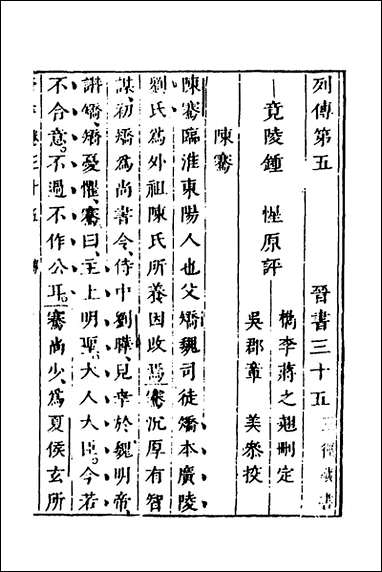 列傳第五　晉書三十五
竟陵鍾　惺原評
檇李蔣之翹刪定
吳郡章　美參校
陳騫
陳騫臨淮東陽人也父矯魏司徒矯本廣陵
劉氏爲外祖陳氏所養因改焉騫沉厚有智
謀初矯爲尚書令侍中劉曄見幸於魏明帝
譖矯矯憂懼騫曰主上明聖大人大臣今若
不合意不過不作公耳騫尚少爲夏侯玄所